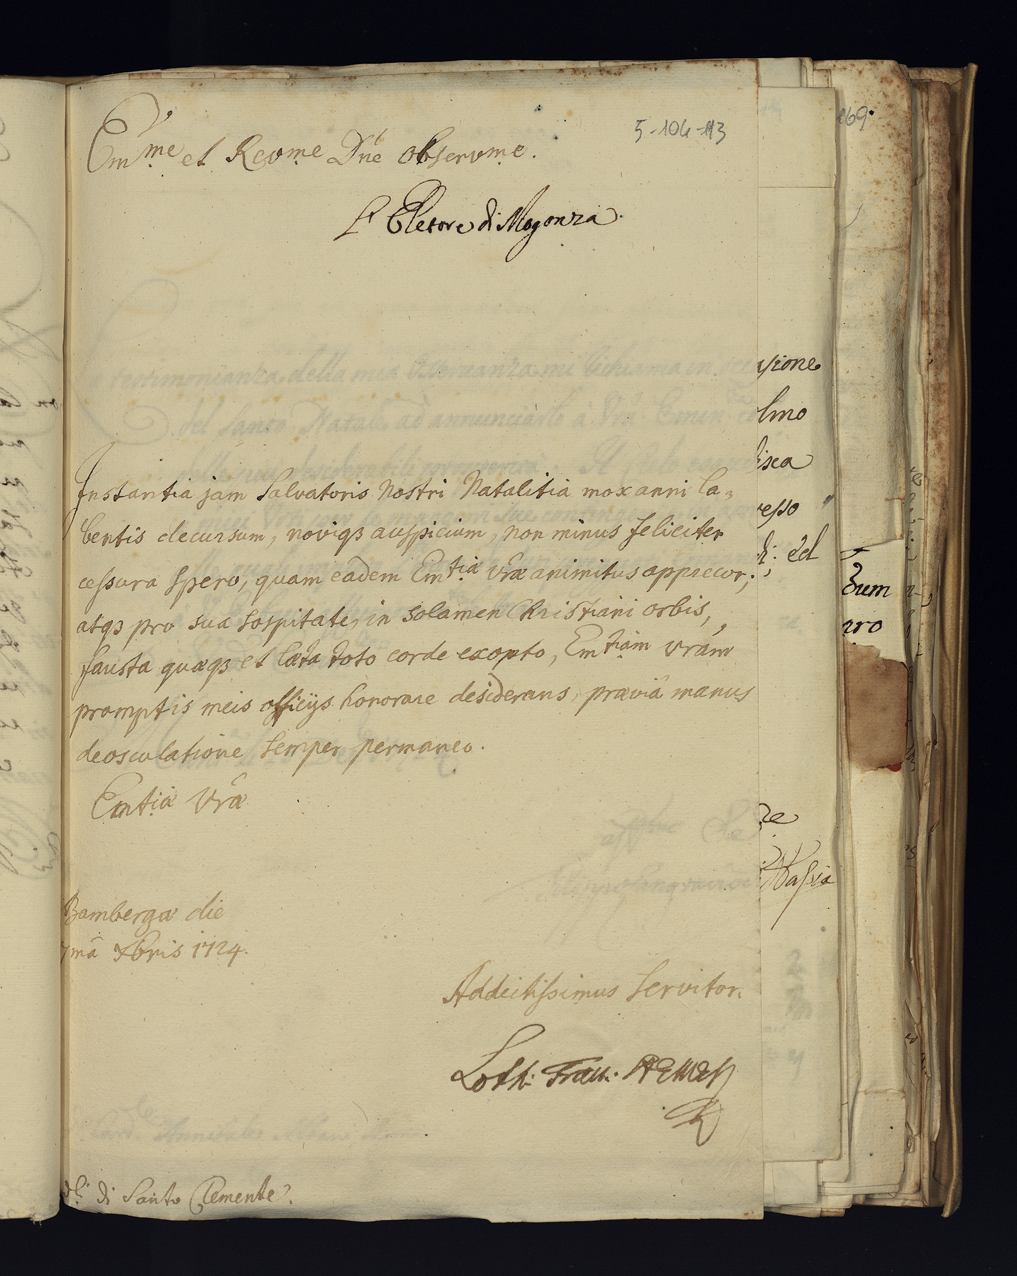 Emme et Revme Dne Observme.
5-104-113
L'Eletore di Mogonza
Instantia jam Salvatoris Nostri Natalitia mox anni la-
bentis decursum, noviq3 auspicium, non minus feliciter
cessura spero, quam eadem Emtiæ Vræ animitus apprecor;
atq3 pro sua sospitate, in solamen Christiani orbis,
fausta quæq3 et læta toto corde exopto, Emtiam Vram
promptis meis officijs honorare desiderans, præviâ manus
deosculatione semper permaneo.
Emtiæ Vræ
Bambergæ die
7mâ Xbris 1724.
Addictissimus Servitor.
Loth: Fran:
di Santo Clemente.
169.
usione
lmo
esso
di; ed
Zum
aro